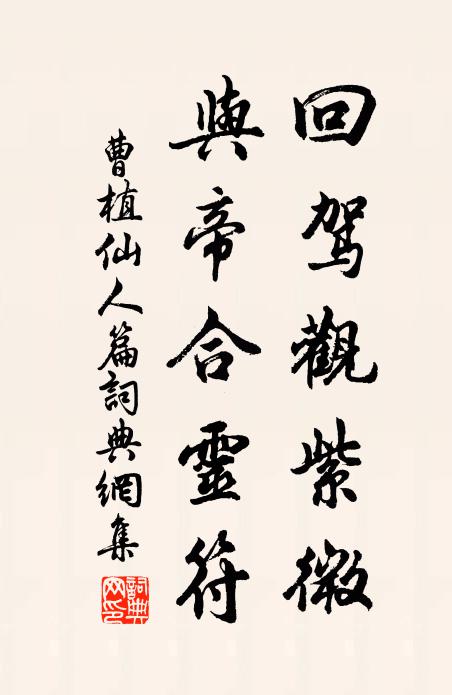 回驾觀紫微
與帝合靈符
曹植仙人篇詞典網集
詞典网印